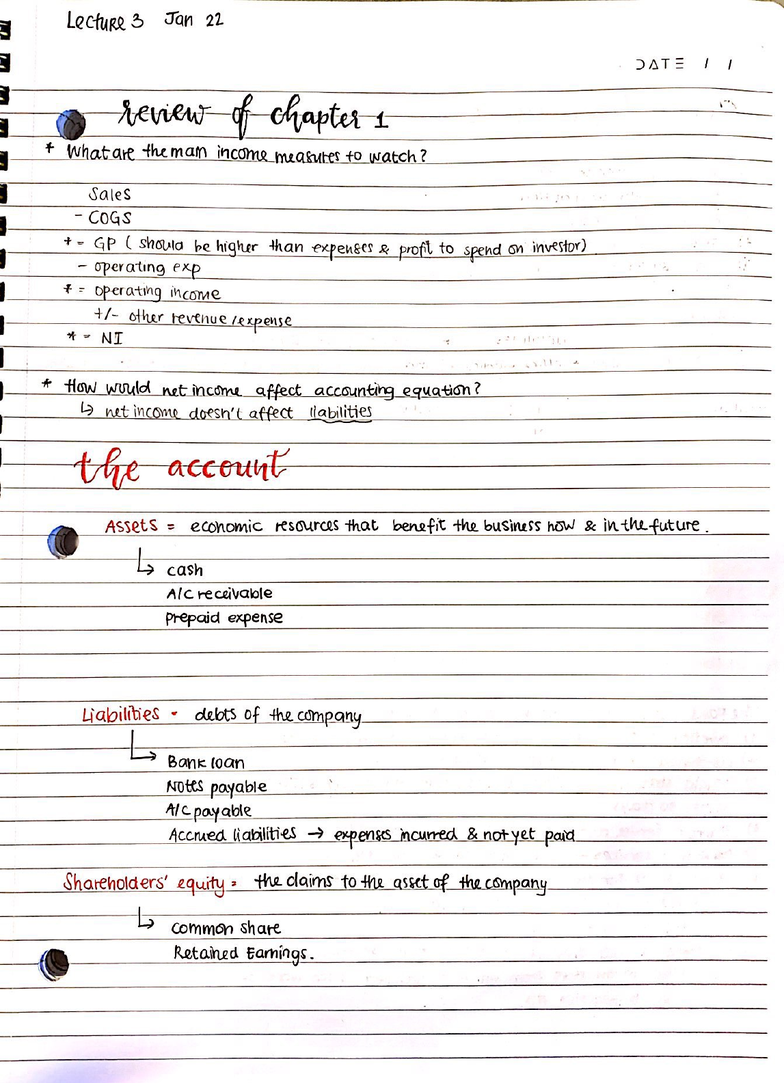 Lecture 3 Jan 22
DATE / /
review of chapter 1
* What are the main income measures to watch?
Sales
- COGS
* = GP ( should be higher than expenses & profit to spend on investor)
- operating exp
* = operating income
+/- other revenue/expense
* = NI
* How would net income affect accounting equation?
↳ net income doesn't affect liabilities
the account
Assets = economic resources that benefit the business now & in the future.
↳ cash
A/C receivable
Prepaid expense
Liabilities - debts of the company
↳ Bank loan
Notes payable
A/C payable
Accrued liabilities → expenses incurred & not yet paid
Shareholders' equity = the claims to the asset of the company
↳ common share
Retained Earnings.